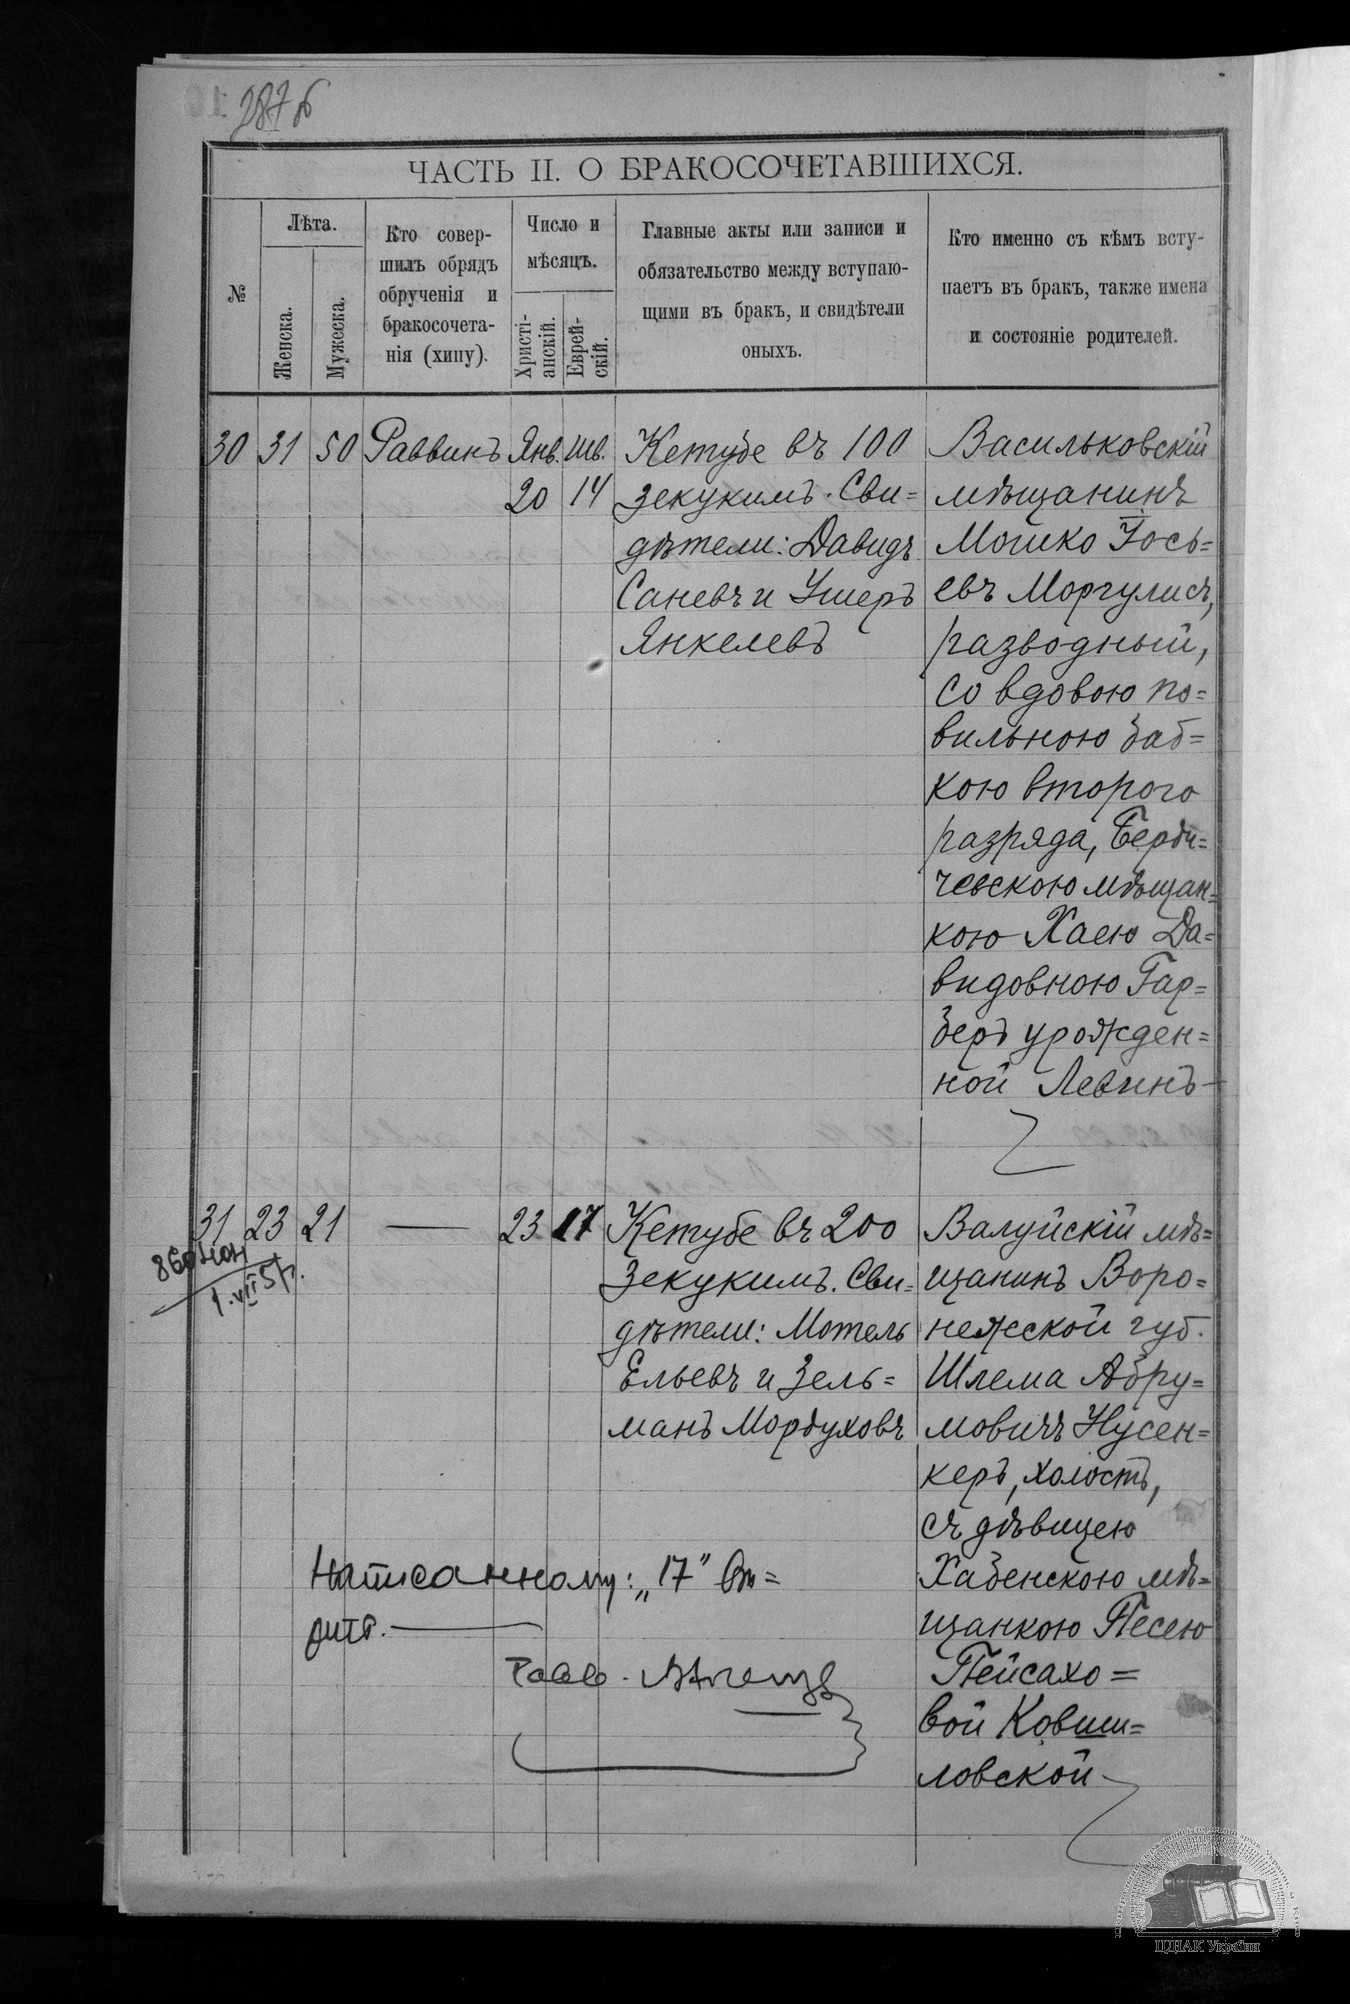 287 б
ЧАСТЬ II. О БРАКОСОЧЕТАВШИХСЯ.
№
Лѣта.
Женска.
Мужеска.
Кто совер-
шилъ обрядъ
обрученія и
бракосочета-
нія (хипу).
Число и
мѣсяцъ.
Христі-
анскій.
Еврей-
скій.
Главные акты или записи и
обязательство между вступаю-
щими въ бракъ, и свидѣтели
оныхъ.
Кто именно съ кѣмъ всту-
паетъ въ бракъ, также имена
и состояніе родителей.
30 31 50 Раввинъ Янв. Шв.
20 14
Кетубе въ 100
зекукимъ. Сви=
дѣтели: Давидъ
Саневъ и Ушеръ
Янкелевъ
Васильковскій
мѣщанинъ
Мошко Іось=
евъ Моргулисъ,
разводный,
со вдовою по=
вильною баб=
кою второго
разряда, Берди=
чевскою мѣщан=
кою Хаею Да=
видовною Гар=
беръ урожден=
ной Левинъ
31 23 21 — 23 17
Кетубе въ 200
Зекукимъ. Сви=
дѣтели: Мотель
Ельевъ и Зель=
манъ Мордуховъ
Валуйскій мѣ=
щанинъ Воро=
нежской губ.
Шлема Абру=
мовичъ Нусен=
керъ, холостъ,
съ дѣвицею
Хабенскою мѣ=
щанкою Песею
Пейсахо=
вой Ковши=
ловской
1.VII 5
Написанному: „17" вѣ=
рить.
Равв.
ЦДІАК України